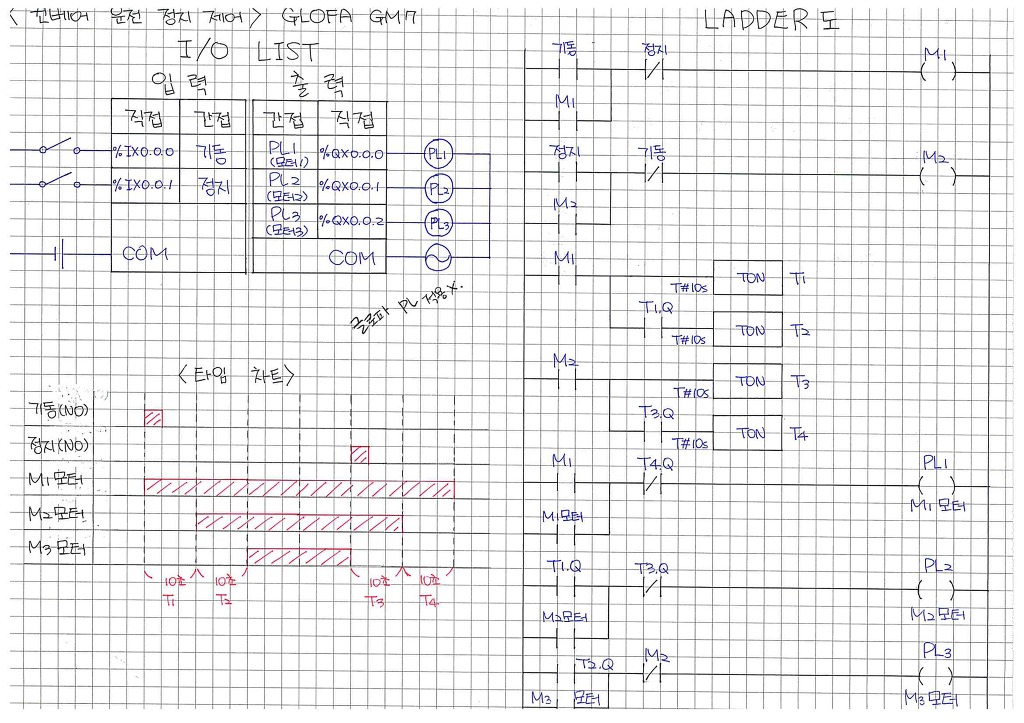 < 컨베어 운전 정지 제어 > GLOFA GM7
I/O LIST
입력 출력
직접 간접 간접 직접
%IX0.0.0 기동 PL1 (모터1) %QX0.0.0 PL1
%IX0.0.1 정지 PL2 (모터2) %QX0.0.1 PL2
PL3 (모터3) %QX0.0.2 PL3
COM COM
글로파 PL 적용X.
<타임 차트>
기동(NO)
정지(NO)
M1모터
M2모터
M3모터
10초 10초 10초 10초
T1 T2 T3 T4
LADDER도
기동 정지 M1
M1
정지 기동 M2
M2
M1
T#10s TON T1
T1.Q
T#10s TON T2
M2
T#10s TON T3
T3.Q
T#10s TON T4
M1 T4.Q PL1
M1모터
M1모터
T1.Q T3.Q PL2
M2모터
M2모터
T2.Q M2 PL3
M3 모터 M3모터